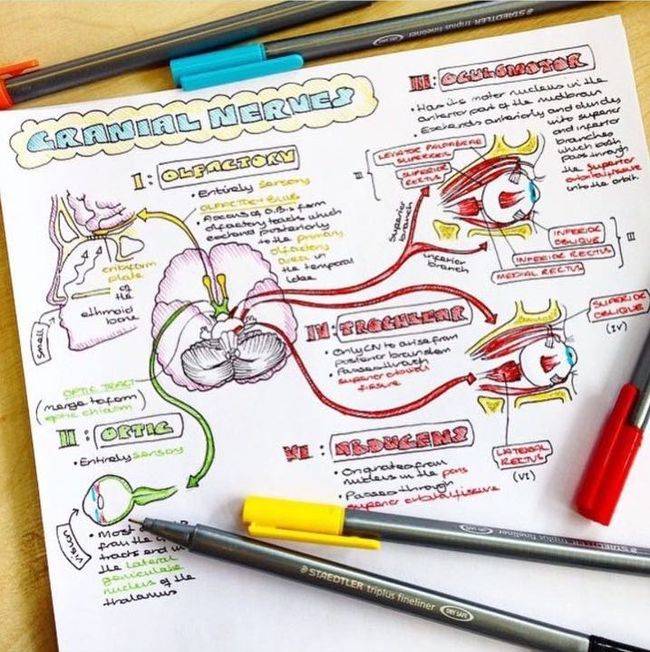 CRANIAL NERVES
I : OLFACTORY
• Entirely sensory
OLFACTORY BULB
• Axons of O.B.s form
olfactory tracts which
extend posteriorly
to the primary
olfactory
area in
the temporal
lobe
cribiform
plate
of
the
ethmoid
bone
Smell
OPTIC TRACT
(merge to form
optic chiasm)
II : OPTIC
• Entirely sensory
Vision
• Most
from the
tracts end in
the lateral
geniculate
nucleus of the
thalamus
III : OCULOMOTOR
• Has its motor nucleus in the
anterior part of the midbrain
• Extends anteriorly and divides
into superior
and inferior
branches
which both
pass through
the superior
orbital fissure
into the orbit.
LEVATOR PALPABRAE
SUPERIORIS
SUPERIOR
RECTUS
III
Superior
branch
inferior
branch
INFERIOR
OBLIQUE
INFERIOR RECTUS
MEDIAL RECTUS
III
IV : TROCHLEAR
• Only CN to arise from
posterior brainstem
• Passes through
superior orbital
fissure
SUPERIOR
OBLIQUE
(IV)
VI : ABDUCENS
• Originates from
nucleus in the pons
• Passes through
superior orbital fissure
LATERAL
RECTUS
(VI)
STAEDTLER triplus fineliner
STAEDTLER triplus fineliner
STAEDTLER triplus fineliner
DRY SAFE